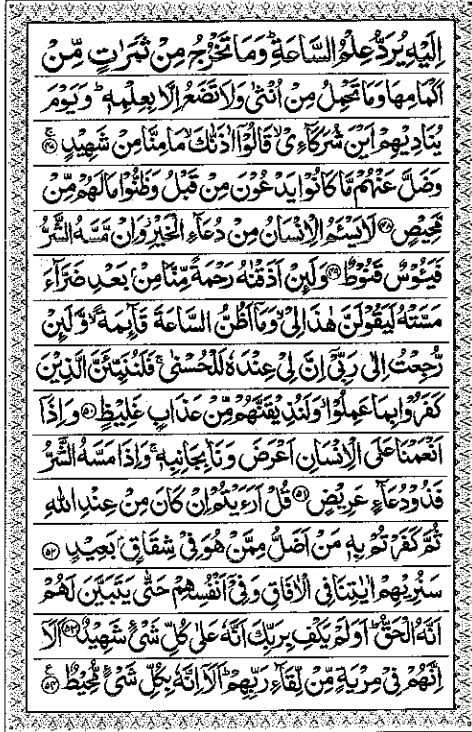 اِلَيْهِ يُرَدُّ عِلْمُ السَّاعَةِ ؕ وَمَا تَخْرُجُ مِنْ ثَمَرٰتٍ مِّنْ
اَكْمَامِهَا وَمَا تَحْمِلُ مِنْ اُنْثٰى وَلَا تَضَعُ اِلَّا بِعِلْمِهٖ ؕ وَيَوْمَ
يُنَادِيْهِمْ اَيْنَ شُرَكَآءِىْ ۙ قَالُوْۤا اٰذَنّٰكَ ۙ مَا مِنَّا مِنْ شَهِيْدٍ ۚ ﴿۴۷﴾
وَضَلَّ عَنْهُمْ مَّا كَانُوْا يَدْعُوْنَ مِنْ قَبْلُ وَظَنُّوْا مَا لَهُمْ مِّنْ
مَّحِيْصٍ ﴿۴۸﴾ لَا يَسْـَٔمُ الْاِنْسَانُ مِنْ دُعَآءِ الْخَيْرِ ۫ وَاِنْ مَّسَّهُ الشَّرُّ
فَيَـُٔوْسٌ قَنُوْطٌ ﴿۴۹﴾ وَلَئِنْ اَذَقْنٰهُ رَحْمَةً مِّنَّا مِنْۢ بَعْدِ ضَرَّآءَ
مَسَّتْهُ لَيَقُوْلَنَّ هٰذَا لِىْ ۙ وَمَاۤ اَظُنُّ السَّاعَةَ قَآئِمَةً ۙ وَّلَئِنْ
رُّجِعْتُ اِلٰى رَبِّىْۤ اِنَّ لِىْ عِنْدَهٗ لَلْحُسْنٰى ۚ فَلَنُنَبِّئَنَّ الَّذِيْنَ
كَفَرُوْا بِمَا عَمِلُوْا ۫ وَلَنُذِيْقَنَّهُمْ مِّنْ عَذَابٍ غَلِيْظٍ ﴿۵۰﴾ وَاِذَاۤ
اَنْعَمْنَا عَلَى الْاِنْسَانِ اَعْرَضَ وَنَاٰ بِجَانِبِهٖ ۚ وَاِذَا مَسَّهُ الشَّرُّ
فَذُوْ دُعَآءٍ عَرِيْضٍ ﴿۵۱﴾ قُلْ اَرَءَيْتُمْ اِنْ كَانَ مِنْ عِنْدِ اللّٰهِ
ثُمَّ كَفَرْتُمْ بِهٖ مَنْ اَضَلُّ مِمَّنْ هُوَ فِىْ شِقَاقٍۢ بَعِيْدٍ ﴿۵۲﴾
سَنُرِيْهِمْ اٰيٰتِنَا فِى الْاٰفَاقِ وَفِىْۤ اَنْفُسِهِمْ حَتّٰى يَتَبَيَّنَ لَهُمْ
اَنَّهُ الْحَقُّ ؕ اَوَلَمْ يَكْفِ بِرَبِّكَ اَنَّهٗ عَلٰى كُلِّ شَىْءٍ شَهِيْدٌ ﴿۵۳﴾ اَلَاۤ
اِنَّهُمْ فِىْ مِرْيَةٍ مِّنْ لِّقَآءِ رَبِّهِمْ ؕ اَلَاۤ اِنَّهٗ بِكُلِّ شَىْءٍ مُّحِيْطٌ ﴿۵۴﴾